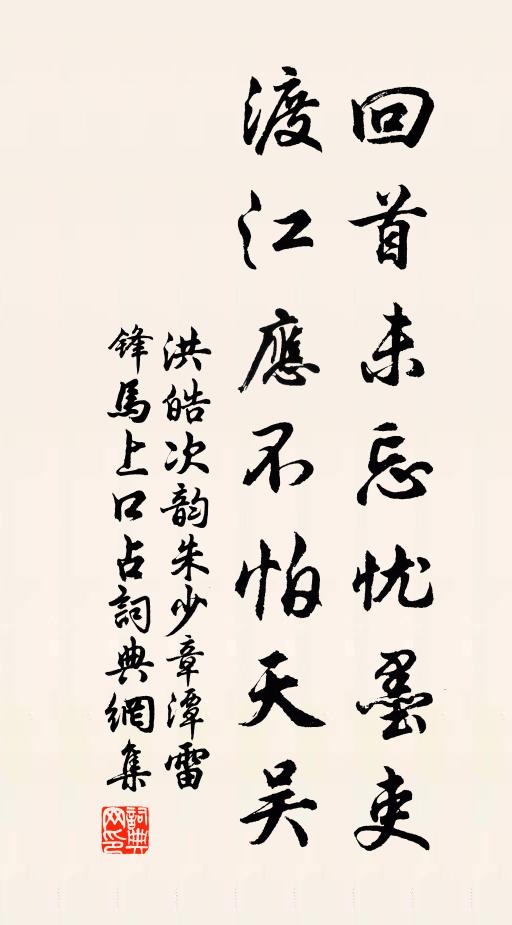 回首未忘忧墨吏
渡江應不怕天吴
洪皓次韵朱少章潭雷
锋馬上口占詞典網集
詞典網印